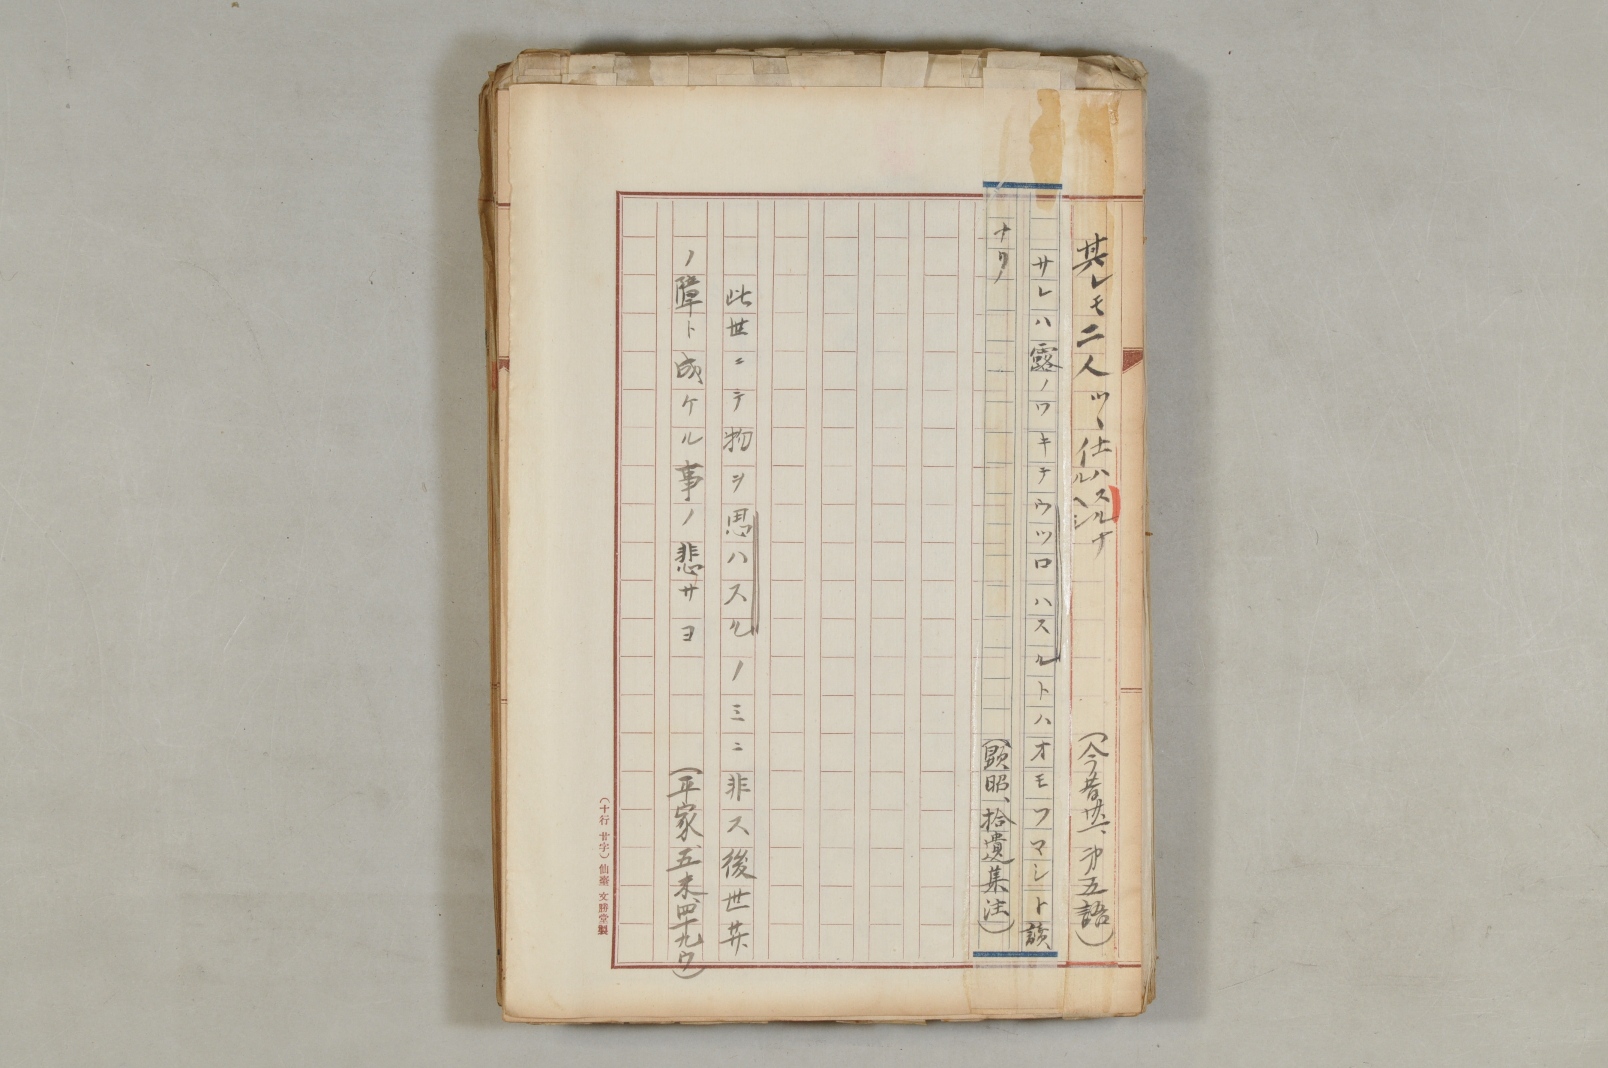 其レモ二人ツヽ仕ハスルナ
ルヘシ
(今昔廿六、第五語)
サレハ露ノワキテウツロハスルトハオモフマシト讀
ナリ
(顕昭、拾遺集注)
此世ニテ物ヲ思ハスルノミニ非ス後世菩
ノ障ト成ケル事ノ悲サヨ
(平家、五末、四十九ウ)
(十行 廿字) 仙臺 文勝堂製